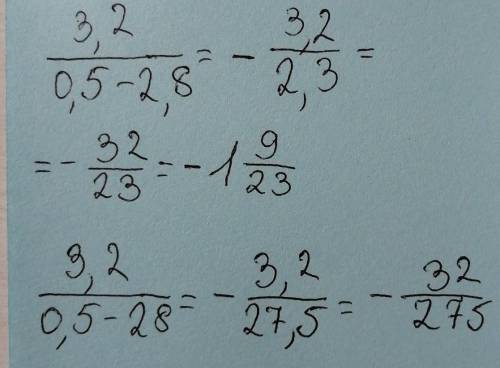 3,2/0,5-2,8 = -3,2/2,3 =
= -32/23 = -1 9/23
3,2/0,5-28 = -3,2/27,5 = -32/275